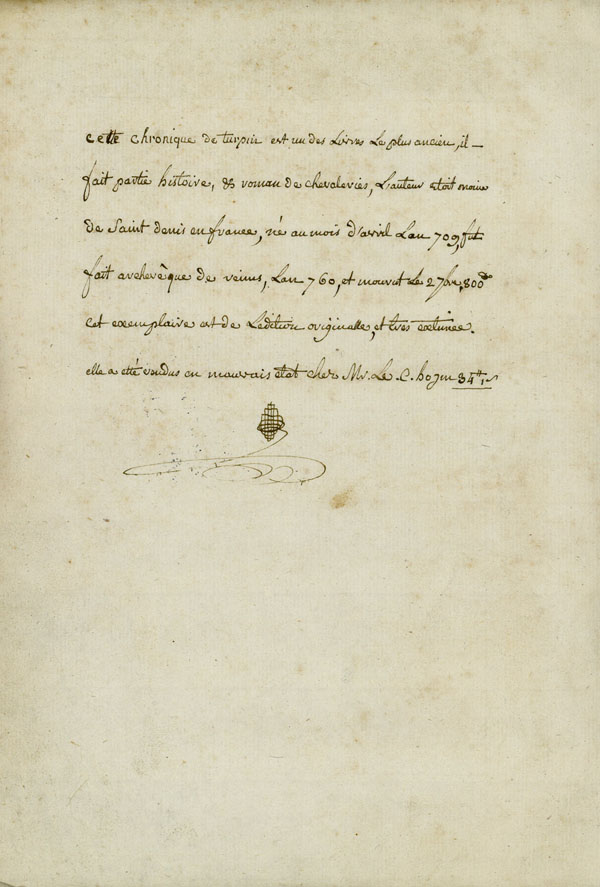 cette chronique de turpin est un des Livres Le plus ancien, il
fait partie histoire, & roman de chevaleries, L'auteur etoit moine
de Saint denis en france, né au mois d'avril Lan 709, fut
fait archevèque de reims, Lan 760, et mourut Le 2 7bre, 800
cet exemplaire est de Ledition originalle, et tres estimée.
elle a etté vendus en mauvais état chez Mr. Le C.